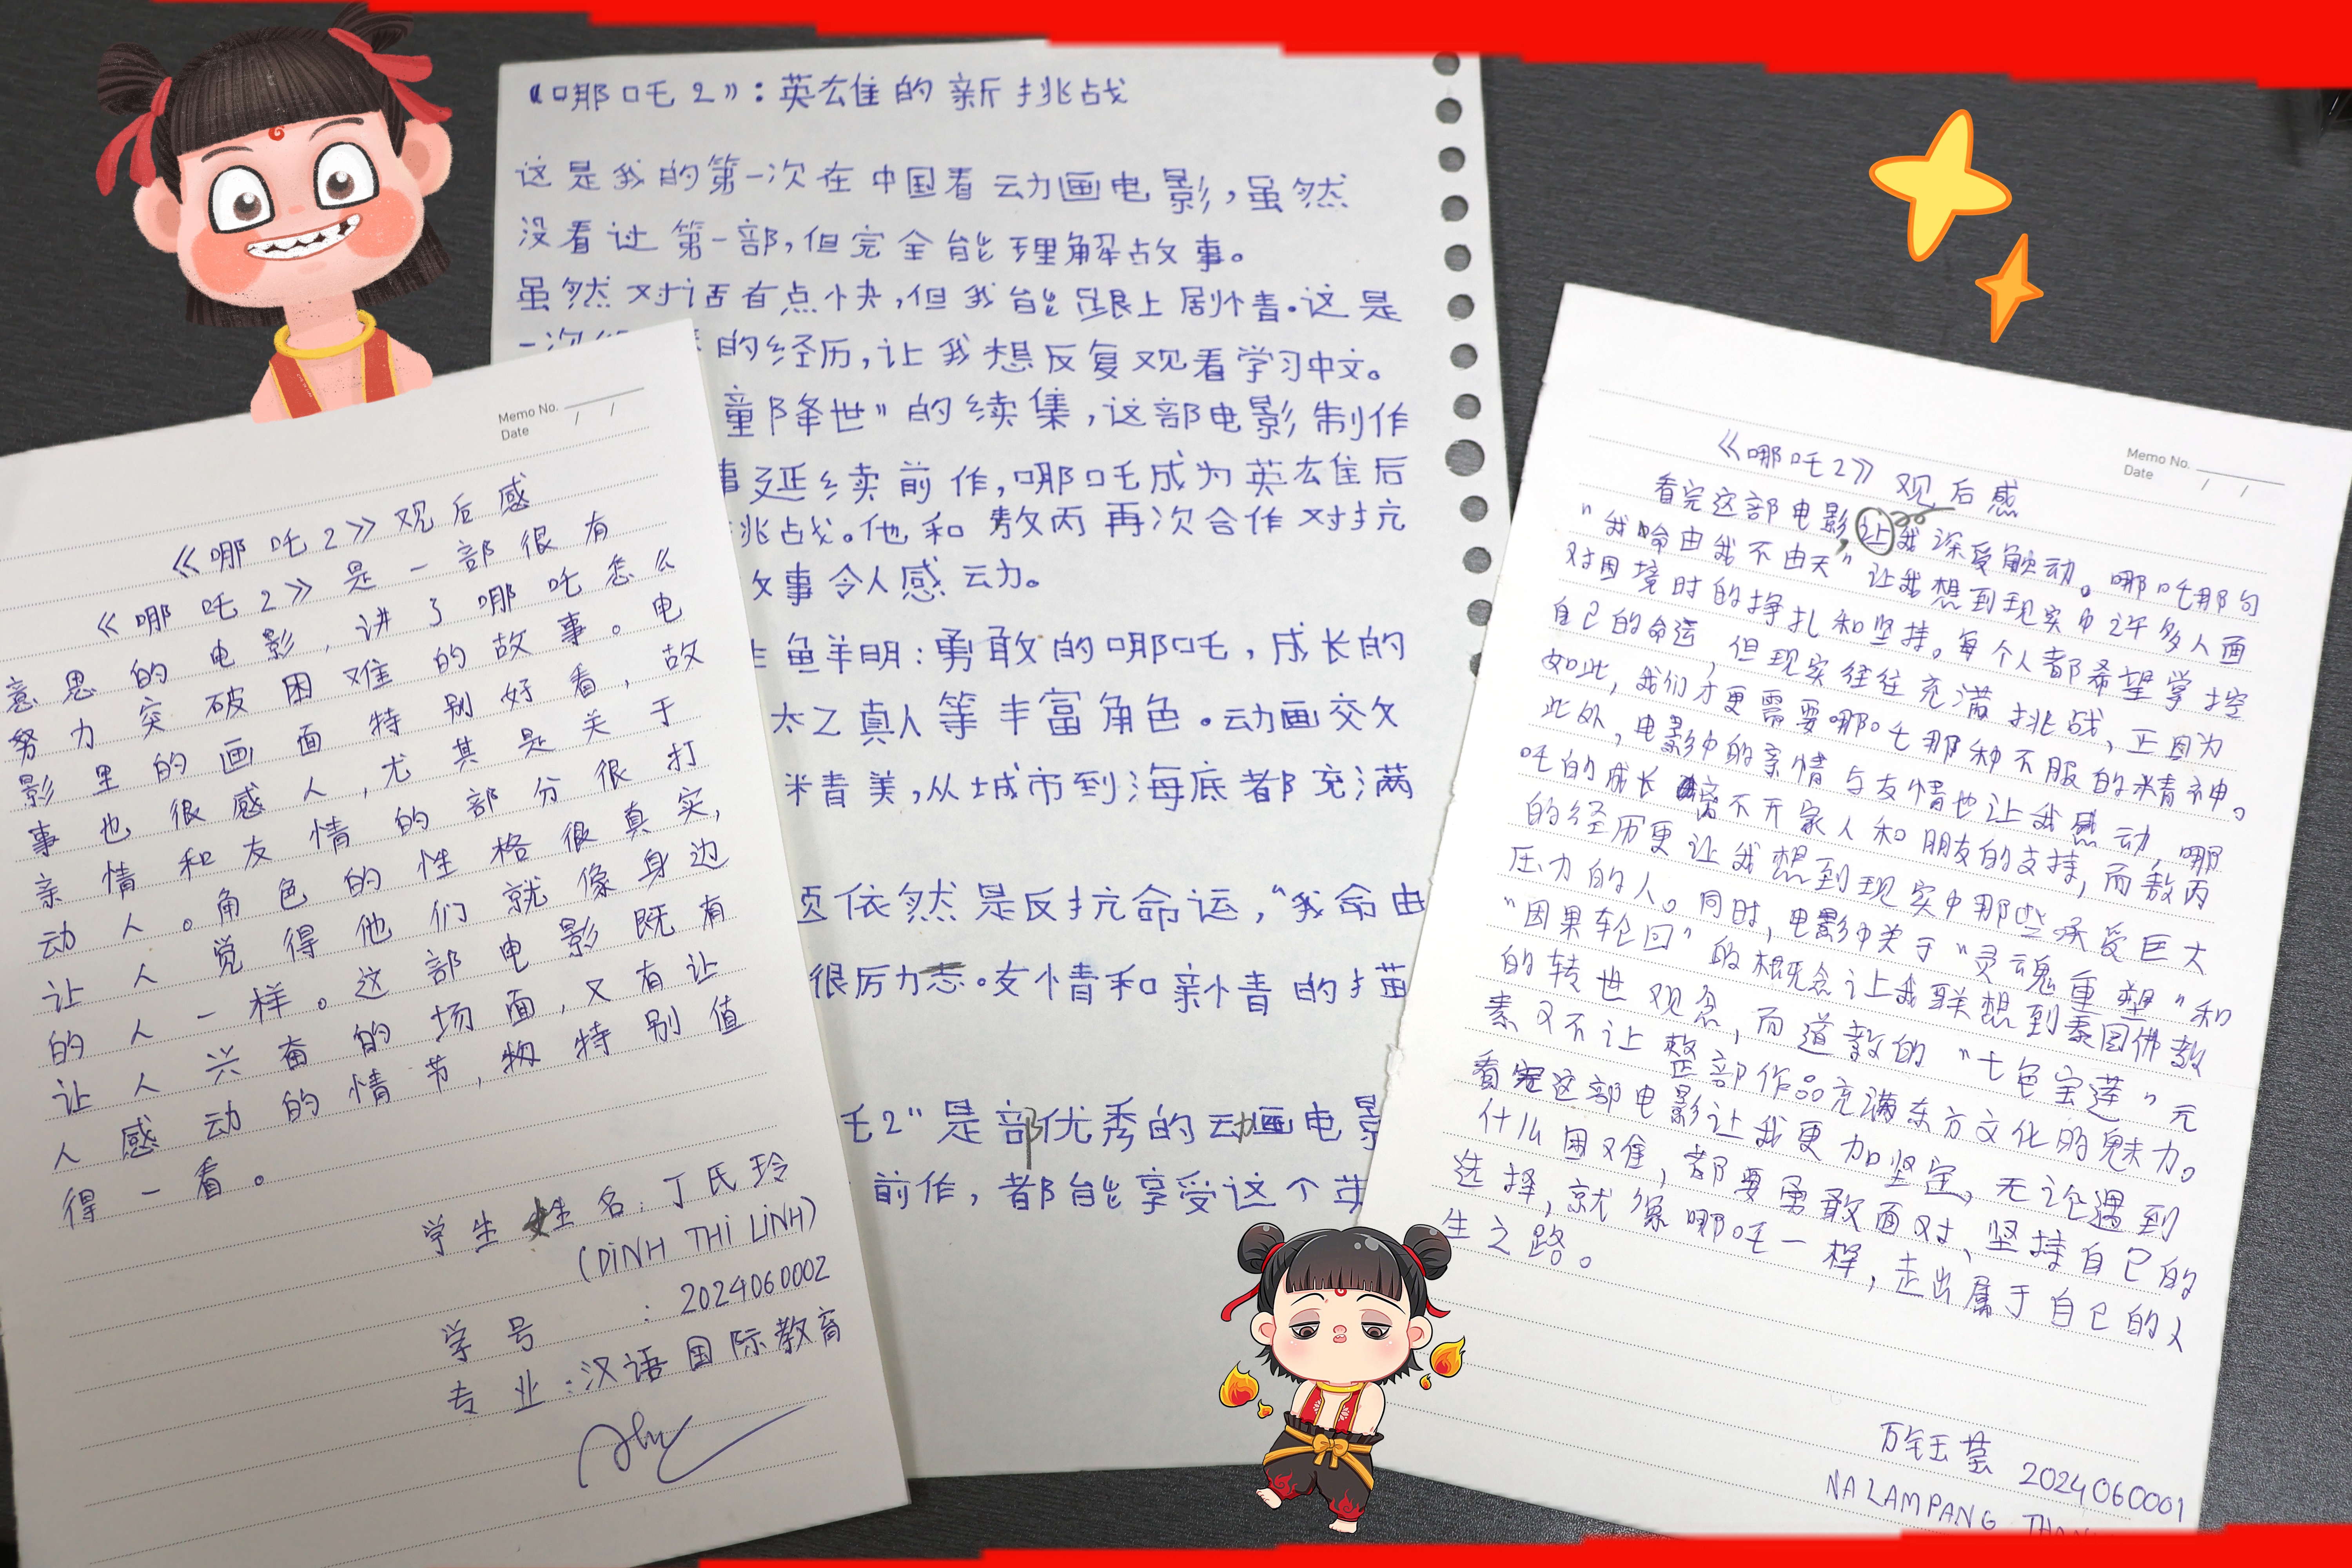 《哪吒2》：英雄的新挑战
这是我的第一次在中国看动画电影，虽然
没看过第一部，但完全能理解故事。
虽然对话有点快，但我能跟上剧情。这是
一次
的经历，让我想反复观看学习中文。
童降世”的续集，这部电影制作
事延续前作，哪吒成为英雄后
挑战。他和敖丙再次合作对抗
故事令人感动。
鲜明：勇敢的哪吒，成长的
太乙真人等丰富角色。动画交文
精美，从城市到海底都充满
依然是反抗命运，“我命由
很厉力志。友情和亲情的描
吒2”是部优秀的动画电影
前作，都能享受这个英
Memo No.
Date / /
《哪吒2》观后感
《哪吒2》是一部很有
意思的电影，讲了哪吒怎么
努力突破困难的故事。电
影里的画面特别好看，故
事也很感人，尤其是关于
亲情和友情的部分很打
动人。角色的性格很真实，
让人觉得他们就像身边
的人一样。这部电影既有
让人兴奋的场面，又有让
人感动的情节，特别值
得一看。
学生姓名：丁氏玲
(DINH THI LINH)
学号：2024060002
专业：汉语国际教育
Memo No.
Date / /
《哪吒2》观后感
看完这部电影，让我深受触动。哪吒那句
“我命由我不由天”让我想到现实中许多人面
对困境时的挣扎和坚持。每个人都希望掌控
自己的命运，但现实往往充满挑战，正因为
如此，我们才更需要哪吒那种不服的精神。
此外，电影中的亲情与友情也让我感动，哪
吒的成长离不开家人和朋友的支持，而敖丙
的经历更让我想到现实中那些承受巨大
压力的人。同时，电影中关于“灵魂重塑”和
“因果轮回”的概念让我联想到泰国佛教
的转世观念，而道教的“七色宝莲”元
素又不让整部作品充满东方文化的魅力。
看完这部电影让我更加坚定，无论遇到
什么困难，都要勇敢面对，坚持自己的
选择，就像哪吒一样，走出属于自己的人
生之路。
2024060001
NALAMPANG